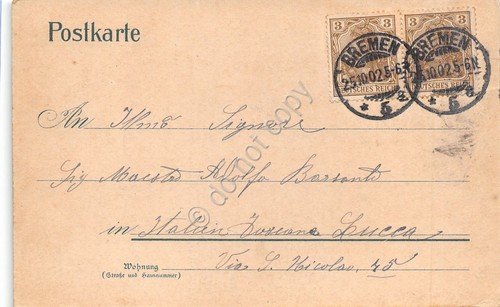 Postkarte
3 3
DEUTSCHES REICH DEUTSCHES REICH
BREMEN BREMEN
25.10.02.5-6N 25.10.02.5-6N
* 5 a * 5 a
An Ilmo Signore
Sig Maestro Adolfo
in Italien Toscana Lucca
Wohnung
Via S. Nicolao, 45
(Straße und Hausnummer)
do not copy